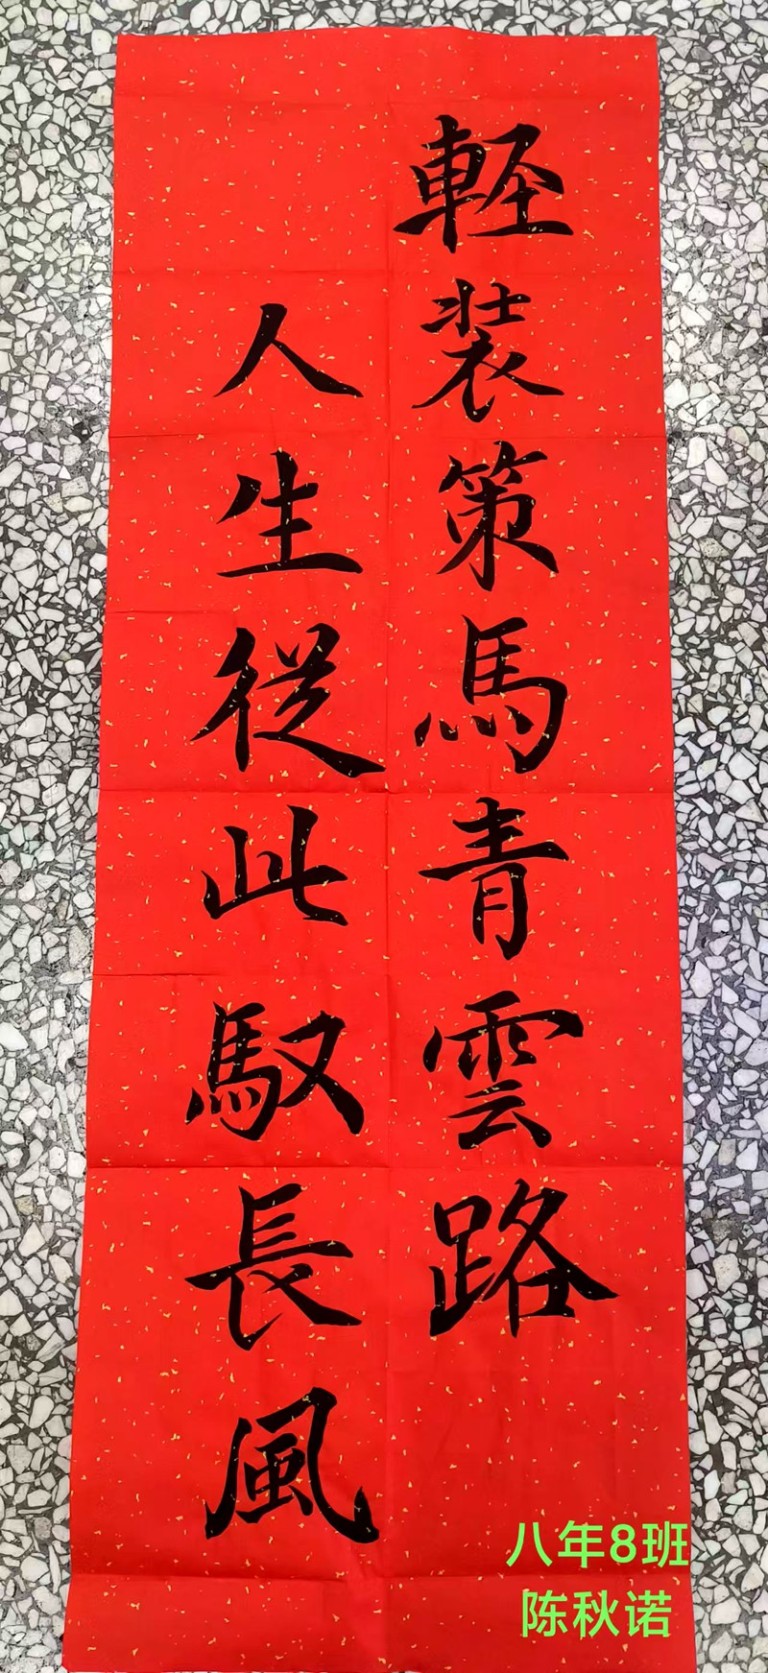 軽装策馬青雲路
人生從此馭長風
八年8班
陈秋诺